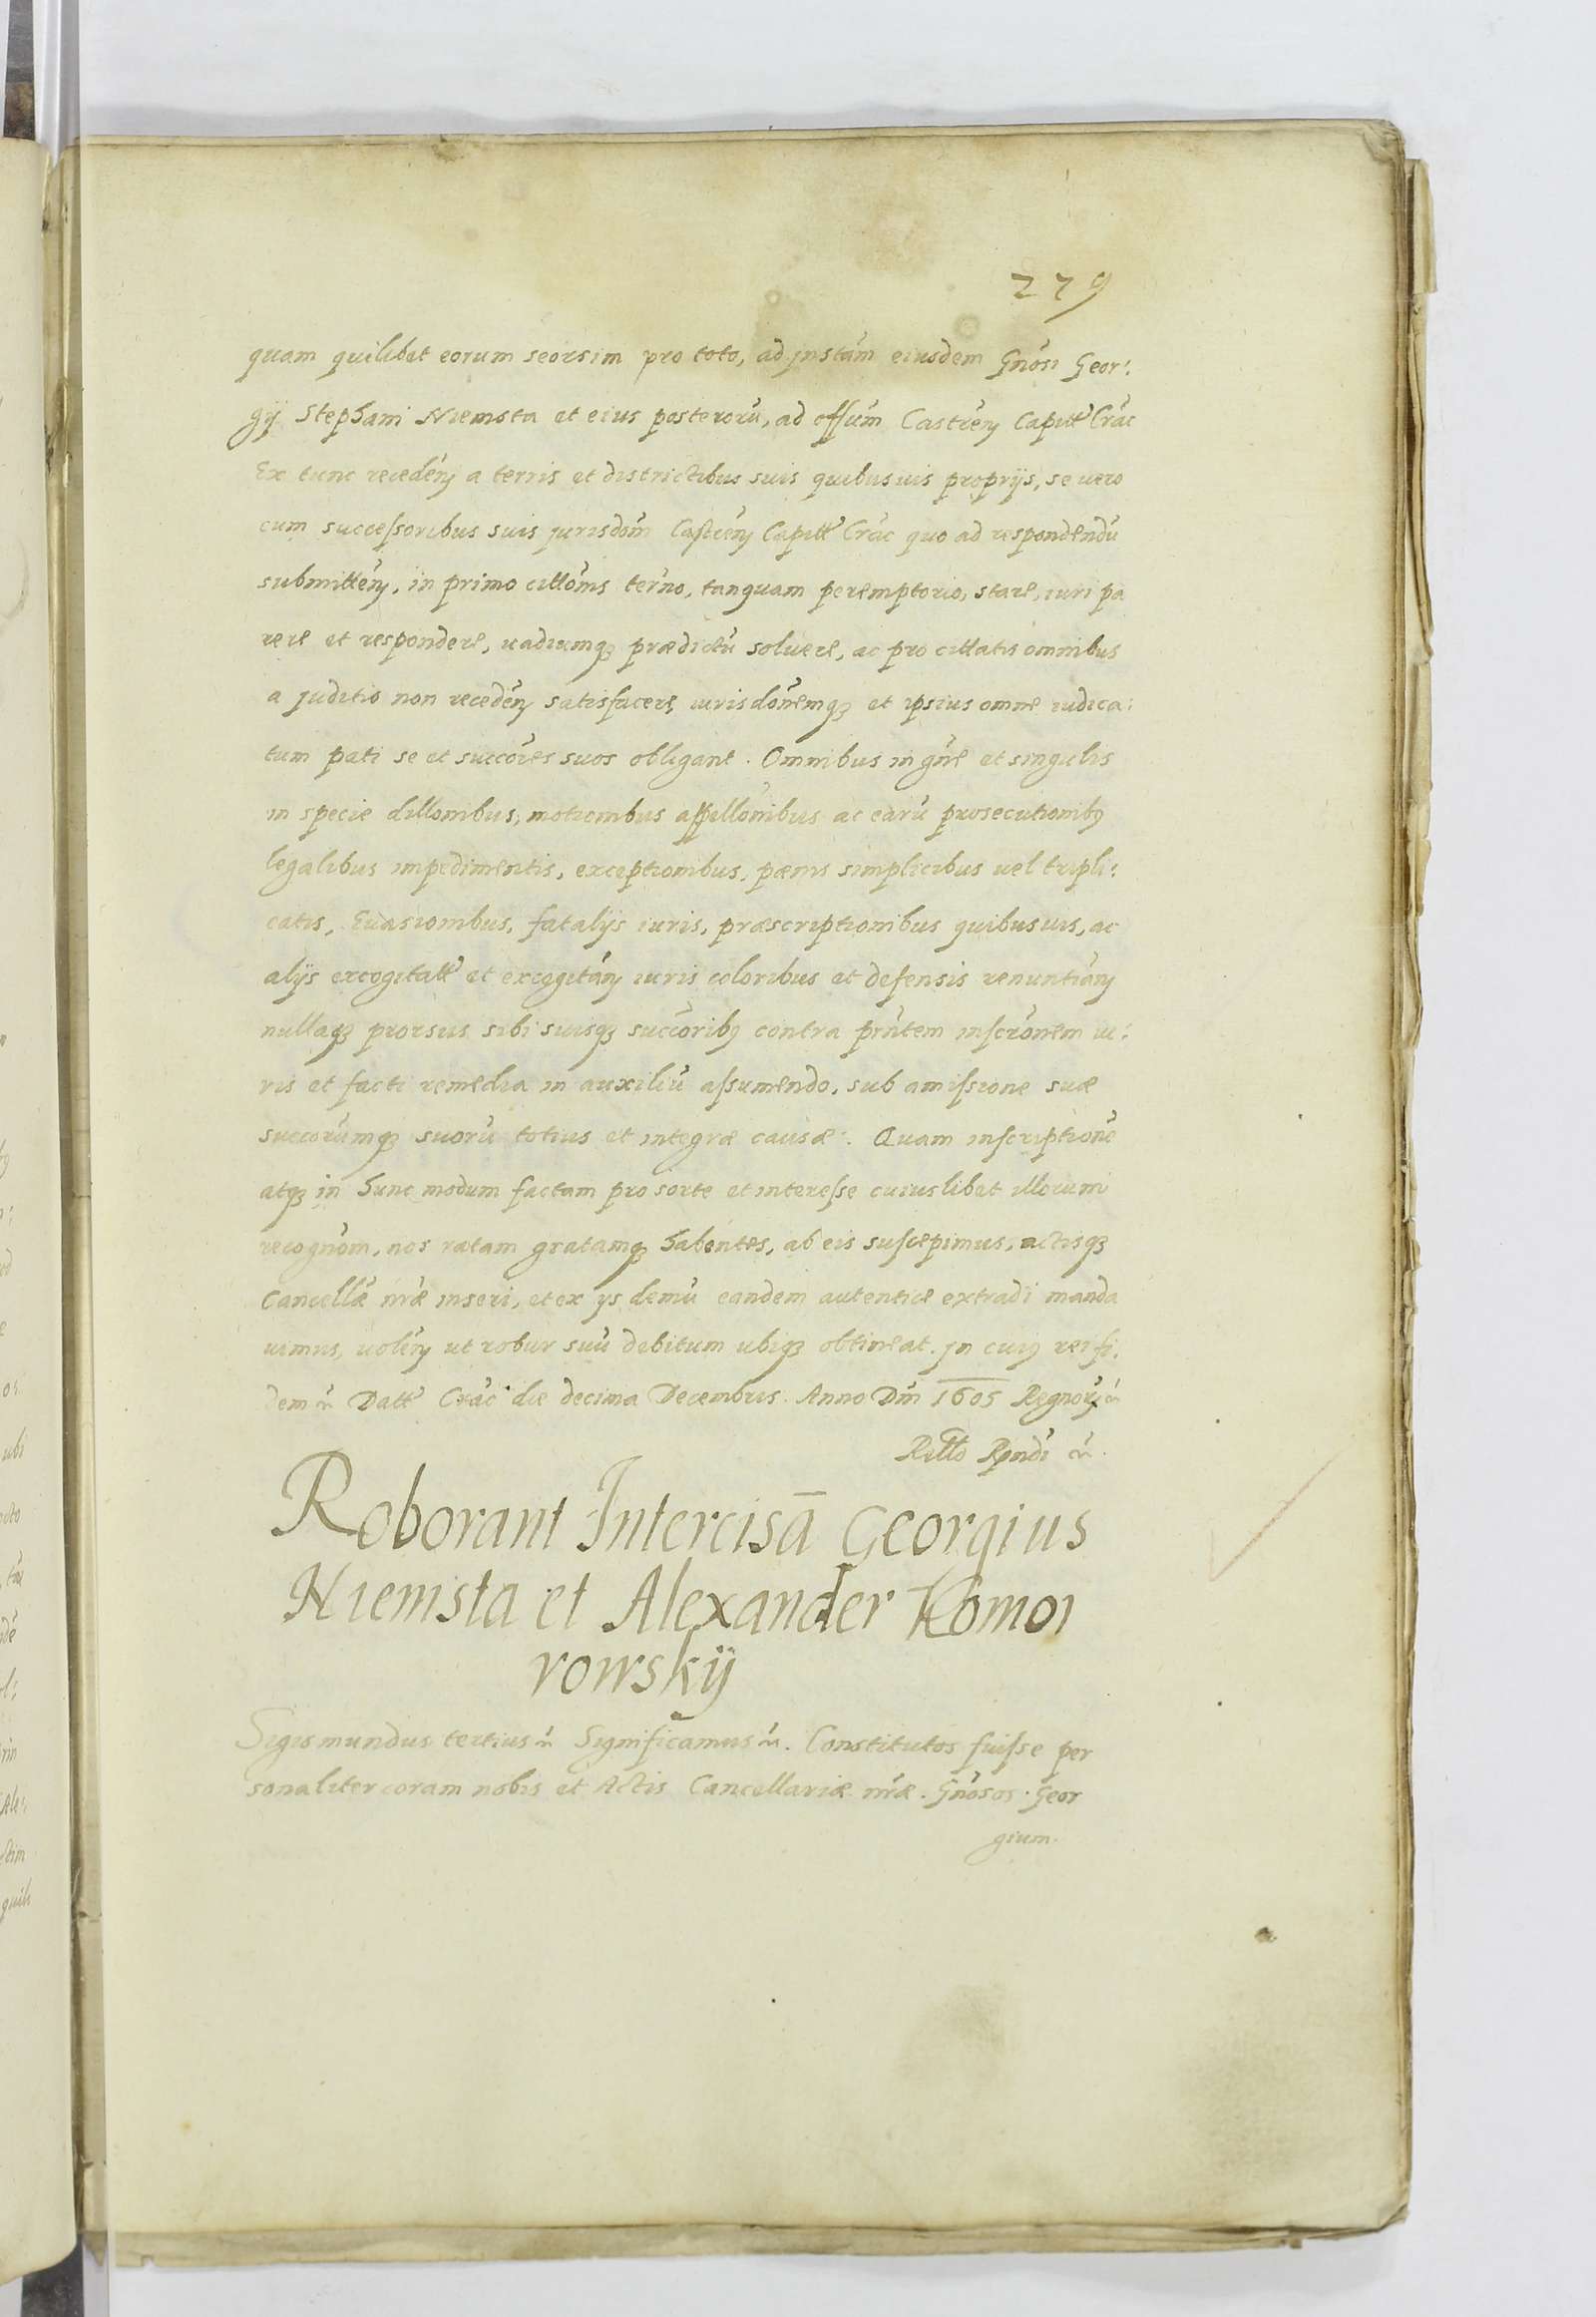 279
quam quilibet eorum seorsim pro toto, ad jnstám eiusdem Gnósi Geor:
gij Stephani Niemsta et eius posterorú, ad offúm Castreń Capitt̕ Crác
Ex tunc recedéń a terris et districtibus suis quibusuis proprijs, se uero
cum successoribus suis jurisdoń Castreń Capitt̕ Crác quo ad respondendú
submittéń, in primo citóńis terńo, tanquam peremptorio, stare, iuri pa
rere et respondere, uadiumq₃ prædictú soluere, ac pro cittatis omnibus
a juditio non recedéń satisfacere, iurisdońemq₃ et ipsius omne iudica:
tum pati se et succóres suos obligant. Omnibus in gńe et singulis
in specie dillonibus, motionibus appellónibus ac earú prosecutionibꝯ
legalibus impedimentis, exceptionibus, pænis simplicibus uel tripli:
catis, Euasionibus, fatalijs iuris, præscriptionibus quibusuis, ac
alijs excogitatt̕ et excogitáń iuris coloribus et defensis renuntiáń
nullaq₃ prorsus sibi suisq₃ succoribꝯ contra prńtem inscrónem iu:
ris et facti remedia in auxiliú assumendo, sub amissione suæ
succorúmq₃ suorú totius et integræ causæ. Quam inscriptioné
atq₃ in hunc modum factam pro sorte et interesse cuiuslibet illorum
recognóm, nos ratam gratamq₃ habentes, ab eis suscepimus, actisq₃
Cancellæ nŕæ inseri, et ex ijs demú eandem autentice extradi manda
uimus, uoléń ut robur suú debitum ubiq₃ obtineat. Jn cuiꝯ rei fi:
dem &c Datt̕ Crác die decima Decembris. Anno Dńi 1605 Regnorú &c
Rettó Rpndi &c.
Roborant Intercisā Georgius
Niemsta et Alexander Komo
rowskÿ
Sigismundus tertius &c Significamus &c. Constitutos fuisse per
sonaliter coram nobis et Actis Cancellariæ nŕæ. Gnósos. Geor
gium.